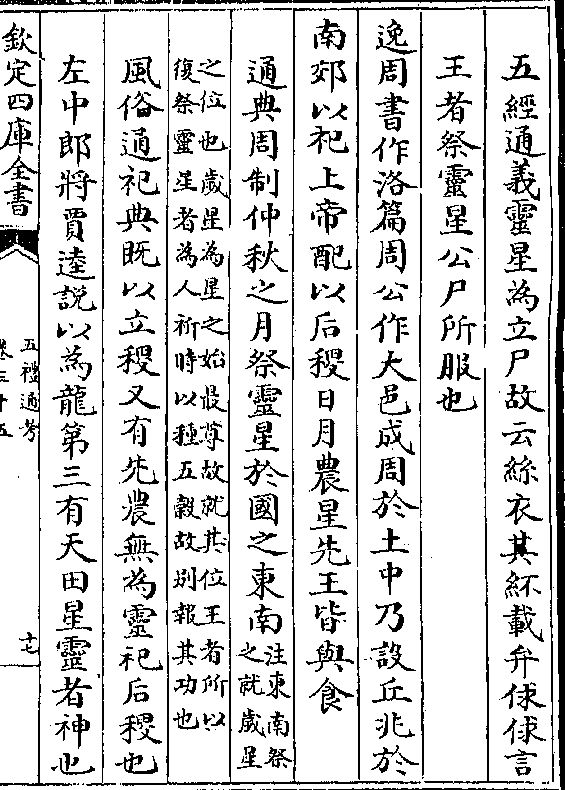 五經通義靈星為立尸故云絲衣其紑載弁俅俅言
王者祭靈星公尸所服也
逸周書作洛篇周公作大邑成周於土中乃設丘兆於
南郊以祀上帝配以后稷日月農星先王皆與食
通典周制仲秋之月祭靈星於國之東南
注東南祭
之就歲星
之位也歲星為星之始最尊故就其位王者所以
復祭靈星者為人祈時以種五穀故别報其功也
風俗通祀典既以立稷又有先農無為靈祀后稷也
左中郎將賈逵說以為龍第三有天田星靈者神也
欽定四庫全書
五禮通考
卷三十五
十七